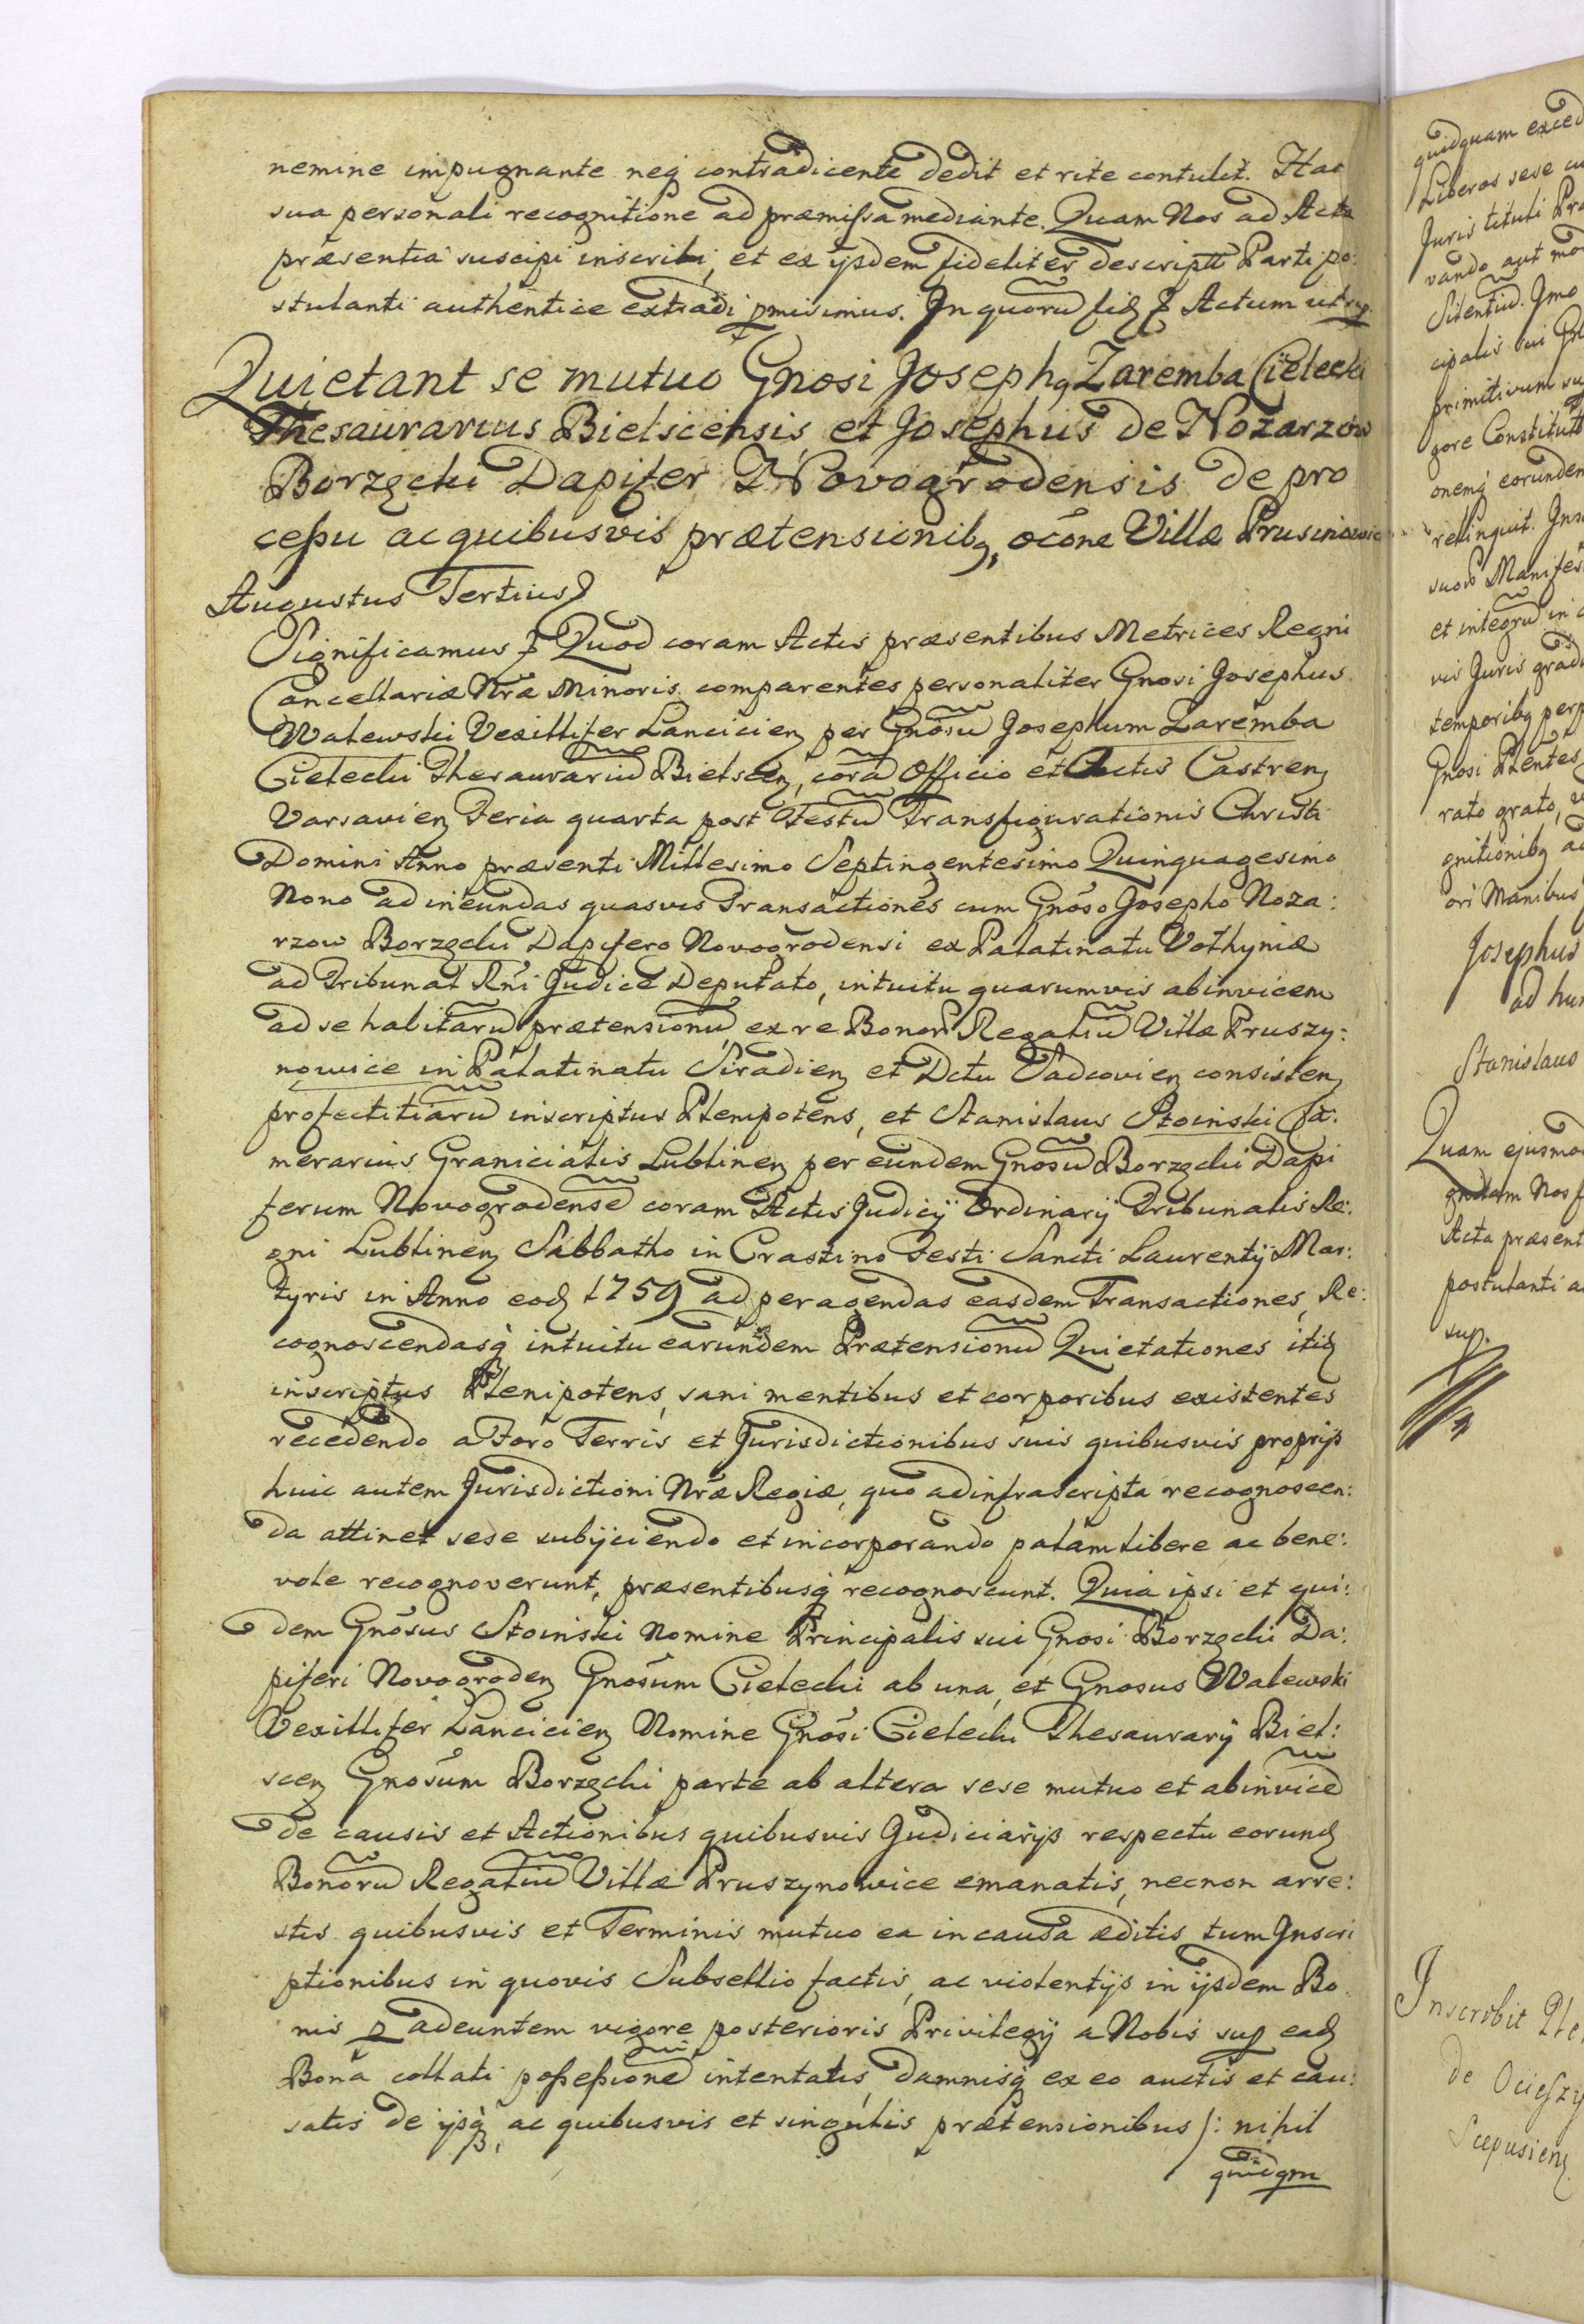 nemine impugnante neq contradicente dedit et rite contulit. Hac
sua personali recognitione ad præmissa mediante. Quam Nos ad Acta
præsentia suscipi inscribi, et ex ijsdem fideliter descriptt Parti po:
stulanti authentice extradi pmisimus. In quorũ fid Actum ut sup.
Quietant se mutuo Gnosi Josephq Zaremba Cielecki
Thesaurarius Bielscensis, et Josephus de Nozarzow
Borzęcki Dapifer Novogrodensis de pro
cessu ac quibusvis prætensionibq, ocõne Villæ Prusinowic
Augustus Tertius
Significamus Quod coram Actis præsentibus Metrices Regni
Cancellariæ Nræ Minoris comparentes personaliter Gnosi Josephus
Walewski Vexillifer Lancicien per Gnosũ Josephum Zaremba
Cielecki Thesaurariũ Bielscen, corã Officio et Actis Castren
Varsavien Feria quarta post Festũ Transfigurationis Christi
Domini Anno præsenti Millesimo Septingentesimo Quinquagesimo
Nono ad ineundas quasvis Transactiones cum Gnõso Josepho Noza:
rzow Borzęcki Dapifero Novogrodensi ex Palatinatu Volhyniæ
ad Tribunal Rni Judice Deputato, intuitu quarumvis abinvicem
ad se habitarũ prætensionũ, ex re Bonor Regaliũ Villæ Pruszy:
nowice in Palatinatu Siradien et Dctu Sadcovien consisten
profectitiarũ inscriptus Plenipotens, et Stanislaus Stoinski Ca:
merarius Graniciatis Lublinen per eundem Gnosũ Borzęcki Dapi
ferum Novogrodensẽ coram Actis Judicij Ordinarij Tribunalis Re:
gni Lublinen Sabbatho in Crastino Festi Sancti Laurentij Mar:
tyris in Anno eod 1759 ad peragendas easdem Transactiones, Re:
cognoscendasq intuitu earundem Prætensionũ Quietationes itid
inscriptus Plenipotens, sani mentibus et corporibus existentes
recedendo a Foro Terris et Jurisdictionibus suis quibusvis proprijs
huic autem Jurisdictioni Nræ Regiæ, quo ad infrascripta recognoscen:
da attinet sese subijciendo et incorporando palam libere ac bene:
vole recognoverunt, præsentibusq recognoscunt. Quia ipsi et qui:
dem Gnõsus Stoinski Nomine Principalis sui Gnosi Borzęcki Da:
piferi Novogroden Gnosum Cielecki ab una, et Gnosus Walewski
Vexillifer Lancicien Nomine Gnõsi Cielecki Thesaurarij Biel:
scen Gnosum Borzęcki parte ab altera sese mutuo et abinvicẽ
de causis et Actionibus quibusvis Judiciarijs respectu eorund
Bonorũ Regaliũ Villæ Pruszynowice emanatis, necnon arre:
stis quibusvis et Terminis mutuo ea in causa æditis tum Inscri
ptionibus in quovis Subsellio factis, ac violentijs in ijsdem Bo
nis p adeuntem vigore posterioris Privilegij a Nobis sup ead
Bona collati possessionẽ intentatis, damnisq ex eo auctis et cau:
satis de ijsq, ac quibusvis et singulis prætensionibus /: nihil
quidqm
quidquam exced
Liberos sese
Juris tituli Pra
vando aut mod
Silentiũ. Imo
cipalis sui Gn
primitivum su
gore Constitut
onemq eorundem
relinquit. Ins
suos Manifes
et integrũ in
vis Juris grad
temporibq perp
Gnosi Plentes
rato grato,
gnitionibq ac
ori Manibus
Josephus
ad hun
Stanislaus
Quam ejusmod
gnitam Nos f
Acta præsent
postulanti a
sup.
Inscribit Ple
de Ocieszy
Scepusien